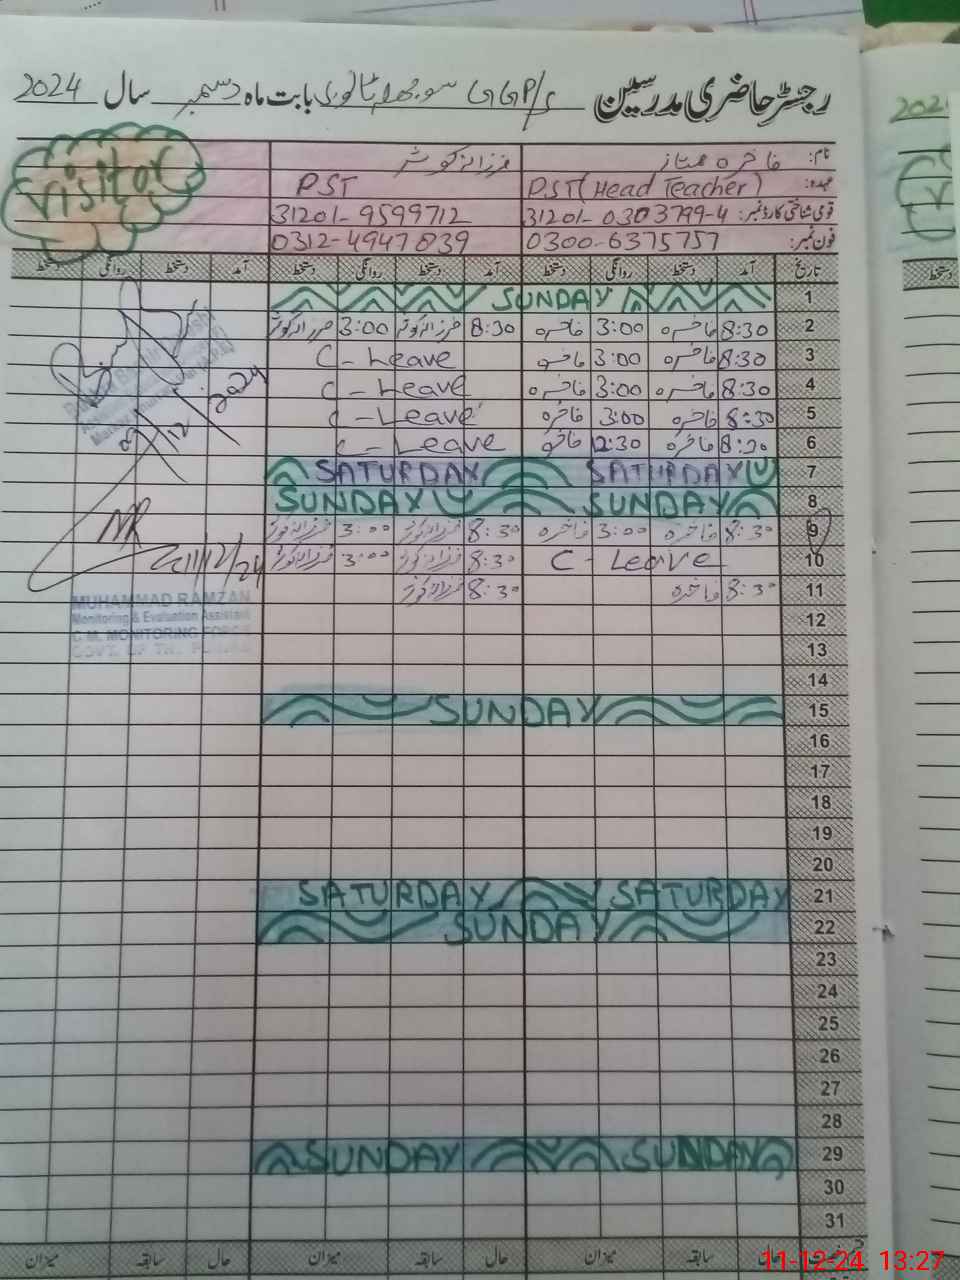 رجسٹر حاضری مدرسین GGP/S سوجھلا ٹالوی بابت ماہ دسمبر سال 2024
Visitor
نام: فاخرہ ممتاز فرزانہ کوثر
عہدہ: PST (Head Teacher) PST
قومی شناختی کارڈ نمبر: 31201-0303799-4 31201-9599712
فون نمبر: 0300-6375757 0312-4947839
تاریخ آمد دستخط روانگی دستخط آمد دستخط روانگی دستخط آمد دستخط روانگی دستخط
1 SUNDAY
2 8:30 فاخرہ 3:00 فاخرہ 8:30 فرزانہ کوثر 3:00 فرزانہ کوثر
3 8:30 فاخرہ 3:00 فاخرہ C-Leave
4 8:30 فاخرہ 3:00 فاخرہ C-Leave
5 8:30 فاخرہ 3:00 فاخرہ C-Leave
6 8:30 فاخرہ 12:30 فاخرہ C-Leave
7 SATURDAY SATURDAY
8 SUNDAY SUNDAY
9 8:30 فاخرہ 3:00 فاخرہ 8:30 فرزانہ کوثر 3:00 فرزانہ کوثر
10 C-Leave 8:30 فرزانہ کوثر 3:00 فرزانہ کوثر
11 8:30 فاخرہ 8:30 فرزانہ کوثر
12
13
14
15 SUNDAY
16
17
18
19
20
21 SATURDAY SATURDAY
22 SUNDAY
23
24
25
26
27
28
29 SUNDAY SUNDAY
30
31
حال سابقہ میزان حال سابقہ میزان حال سابقہ میزان
12 2024
11/12/24
MUHAMMAD RAMZAN
Monitoring & Evaluation Assistant
C.M. MONITORING FORCE
GOVT. OF THE PUNJAB
202
دستخط
11-12-24 13:27